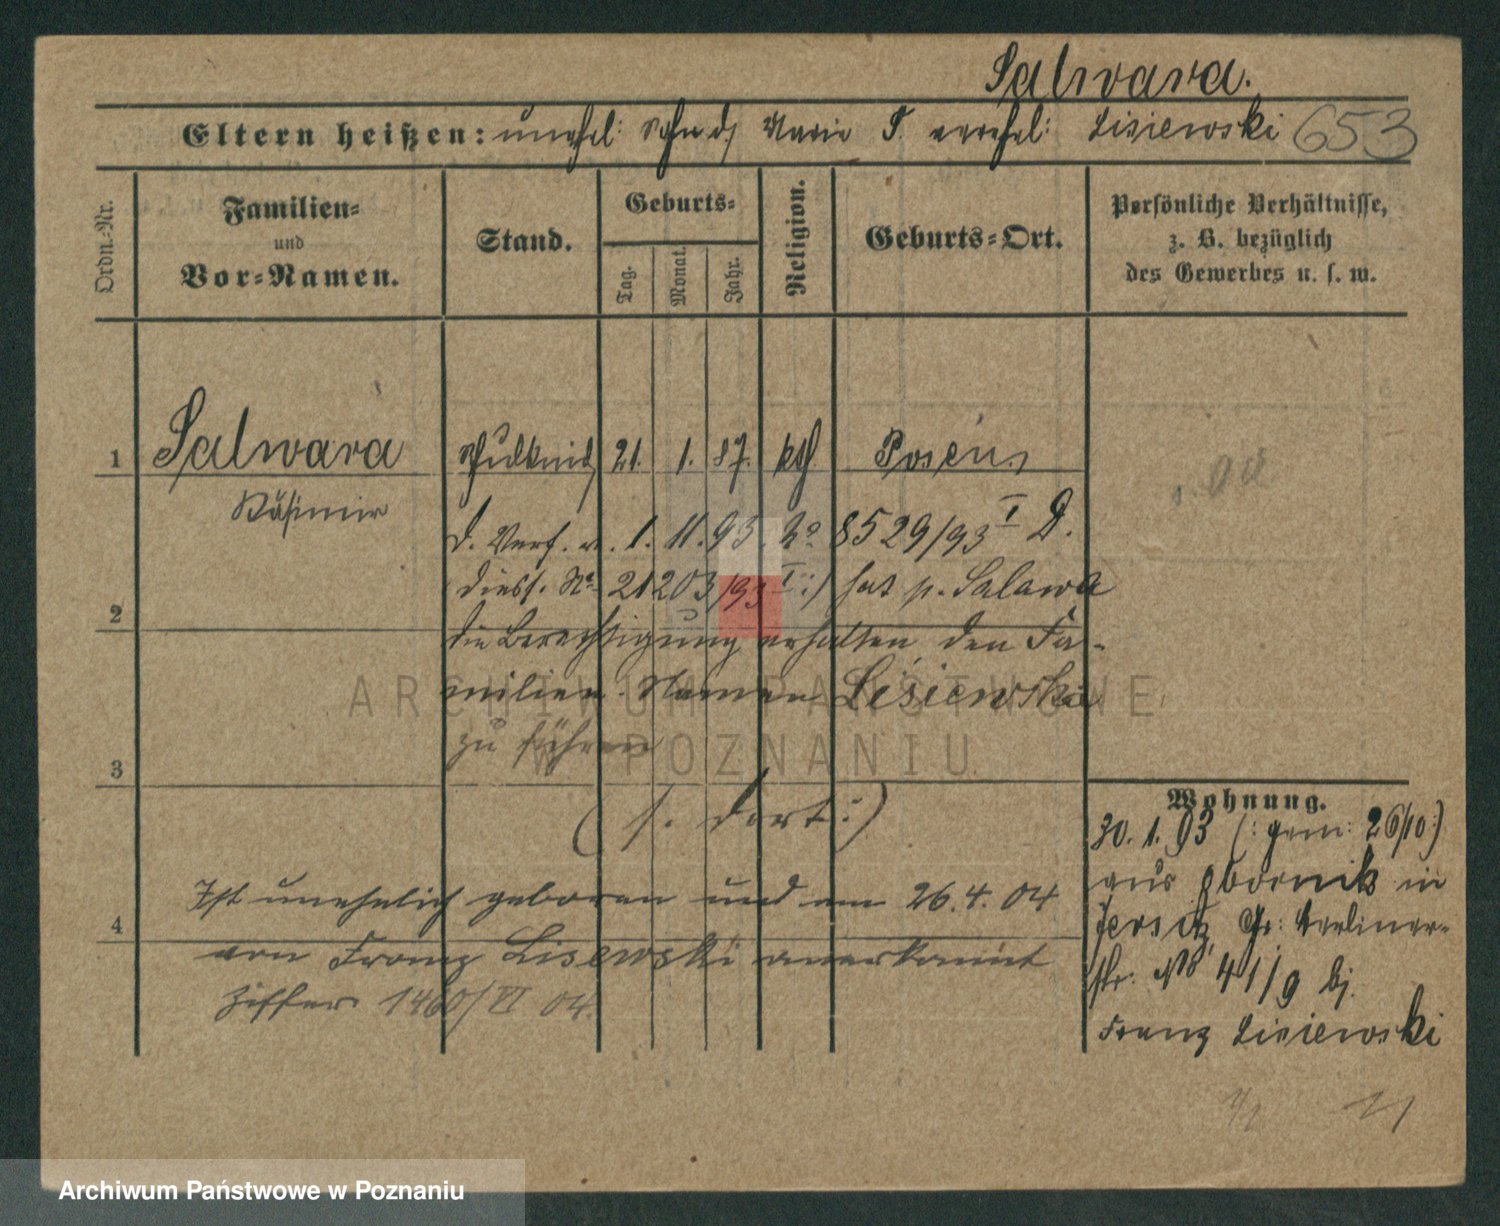 Salwara.
Eltern heißen: unehel: Sohn d, Marie S. verehel: Lisiewski 653
Ordn.-Nr.
Familien-
und
Vor-Namen.
Stand.
Geburts-
Tag.
Monat.
Jahr.
Religion.
Geburts-Ort.
Persönliche Verhältnisse,
z. B. bezüglich
des Gewerbes u. s. w.
1 Salwara Schulkind 21. 1. 87. kth Posen
Kasimir
d. Verf. v. 1. 11. 93. No 8529/93 I D.
diess. No 21203/93 I :) hat p. Salawa
2
die Berechtigung erhalten den Fa-
milien-Namen Lisiewski
zu führen
3
(s. dort:)
Wohnung.
30. 1. 93 (: gem: 26/10:)
aus Obornik in
Jersitz, Gr: Berliner-
str. No 41/9 bj.
Franz Lisiewski
Ist unehelich geboren und am 26.4.04
4
von Franz Lisewski anerkannt
Ziffer 1460/VI 04.
ARCHIWUM PAŃSTWOWE
W POZNANIU
Archiwum Państwowe w Poznaniu